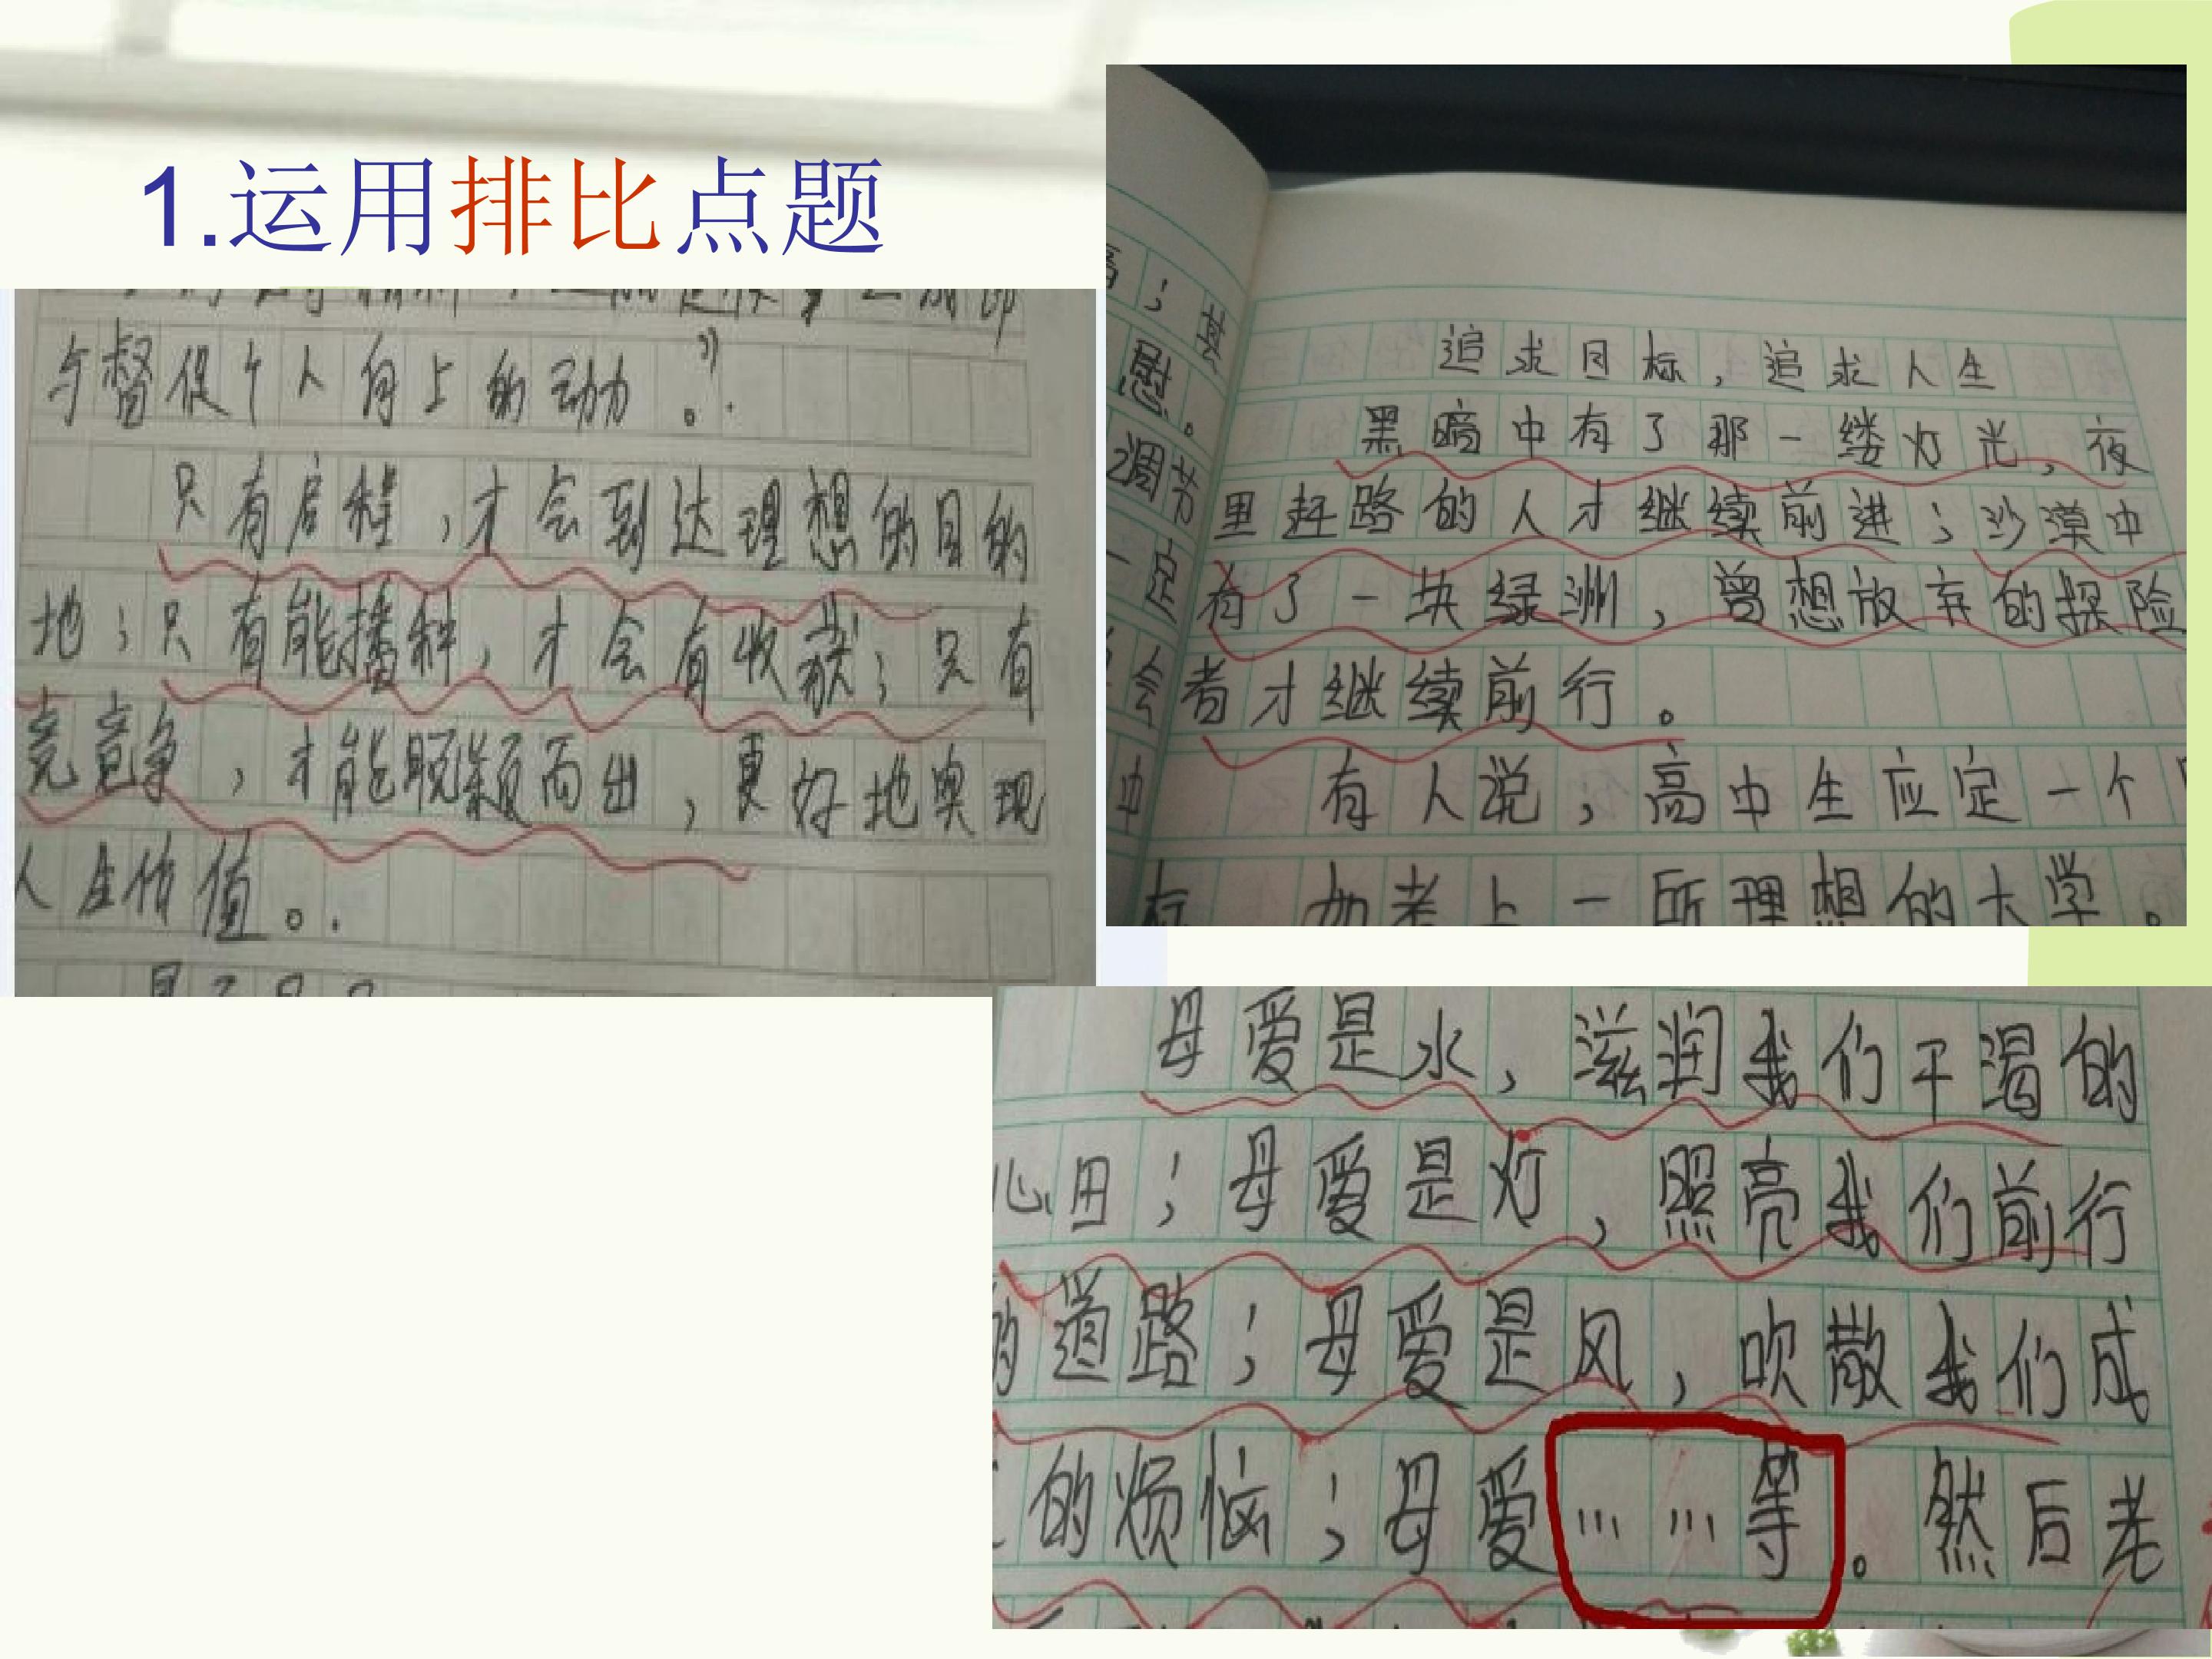 1.运用排比点题
与督促个人向上的动力。”
只有启程,才会到达理想的目的
地;只有能播种,才会有收获;只有
竞竞争,才能脱颖而出,更好地实现
人生价值。
追求目标,追求人生
黑暗中有了那一缕灯光,夜
里赶路的人才继续前进;沙漠中
有了一块绿洲,曾想放弃的探险
者才继续前行。
有人说,高中生应定一个
标 如考上一所理想的大学。
高;其
慰。
调节
一定
会
中
母爱是水,滋润我们干渴的
心田;母爱是灯,照亮我们前行
的道路;母爱是风,吹散我们成
的烦恼;母爱……等。然后老